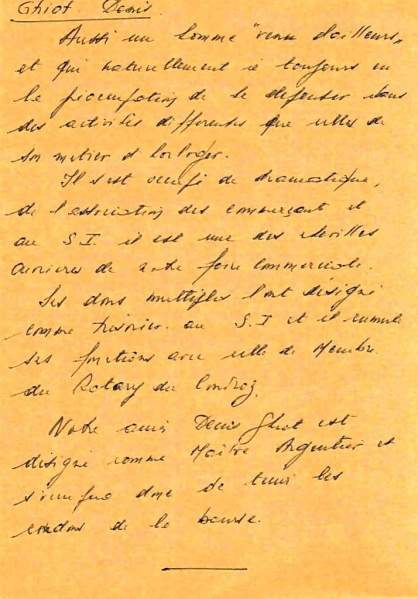 Ghiot Denis.
Aussi un homme "venu d'ailleurs"
et qui naturellement a toujours eu
la préoccupation de se défenser dans
des activités différentes que celles de
son métier d'horloger.
Il s'est occupé de dramatique,
de l'association des commerçants et
au S.I. il est une des chevilles
ouvrières de notre foire commerciale.
Ses dons multiples l'ont désigné
comme trésorier au S.I et il cumule
ses fonctions avec celle de Membre
du Rotary du Condroz.
Notre ami Denis Ghiot est
désigné comme Maître Argentier et
s'occupera donc de tenir les
cordons de la bourse.